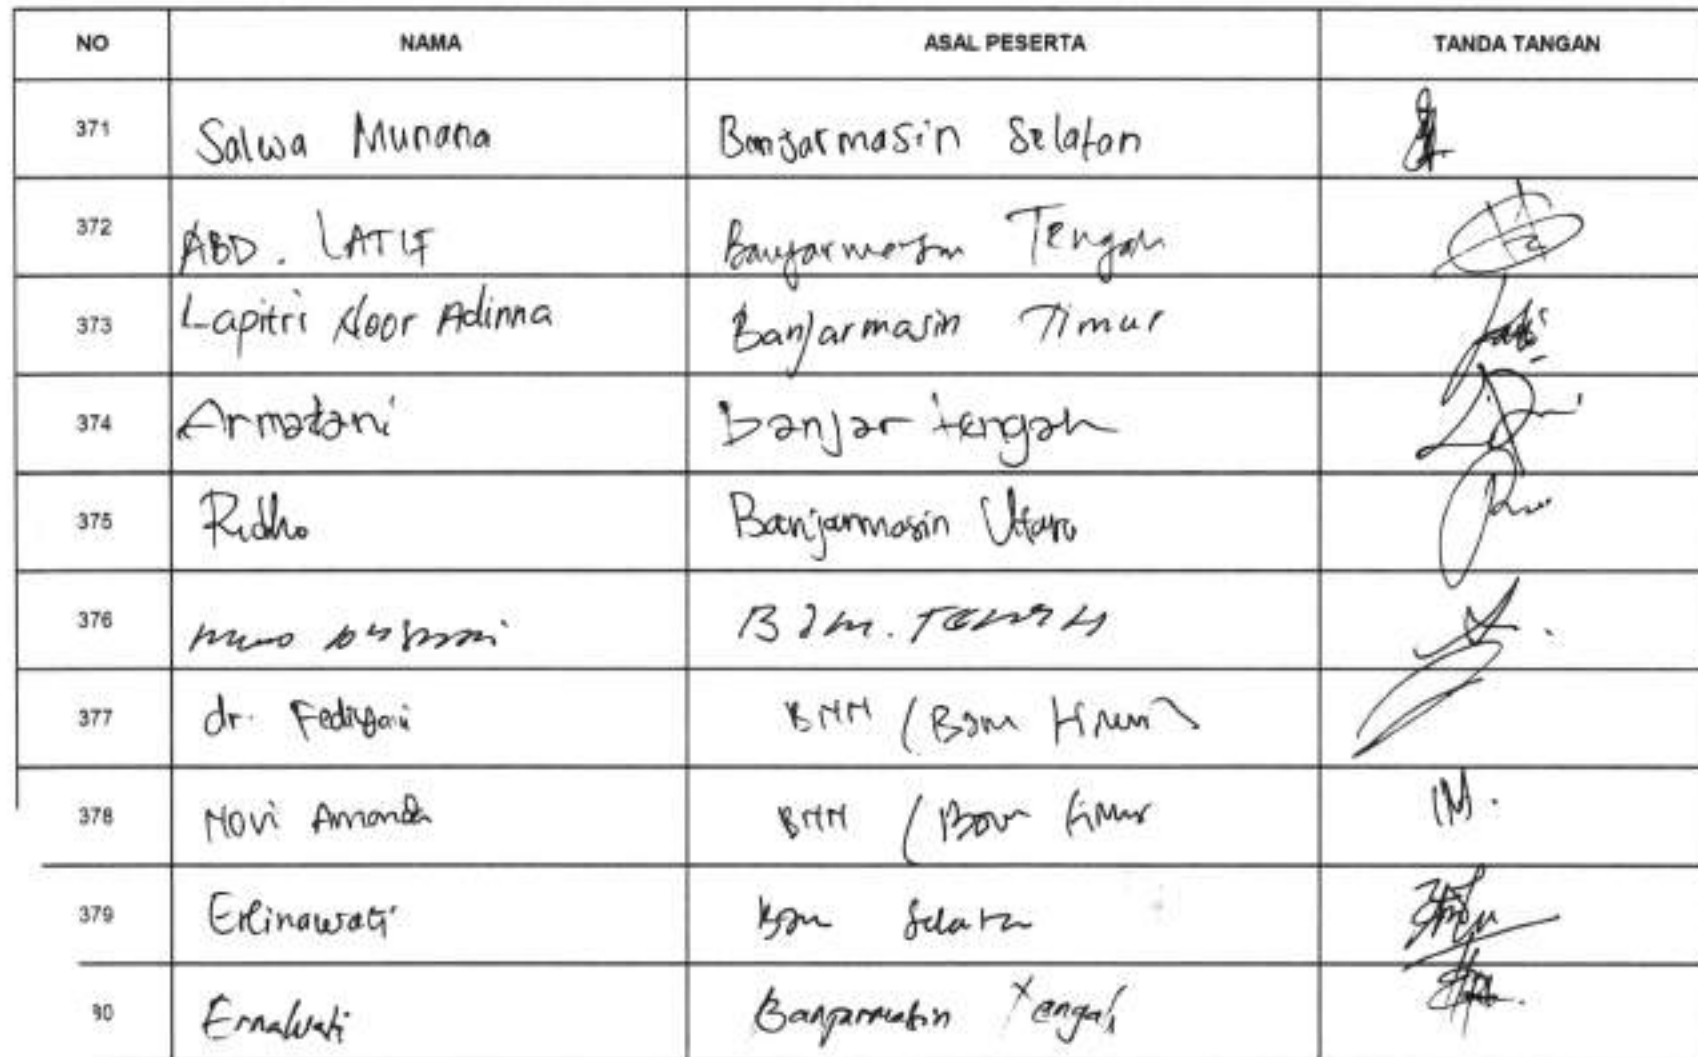 NO NAMA ASAL PESERTA TANDA TANGAN
371 Salwa Munana Banjarmasin Selatan
372 ABD. LATIF Banjarmasin Tengah
373 Lapitri Noor Adinna Banjarmasin Timur
374 Armatani banjar tengah
375 Ridho Banjarmasin Utara
376 BJM. TENGAH
377 dr. BNN (Bjm timur)
378 Novi Amanda BNN (Bjm timur
379 Erlinawati Bjm Selatan
80 Ernawati Banjarmasin Tengah